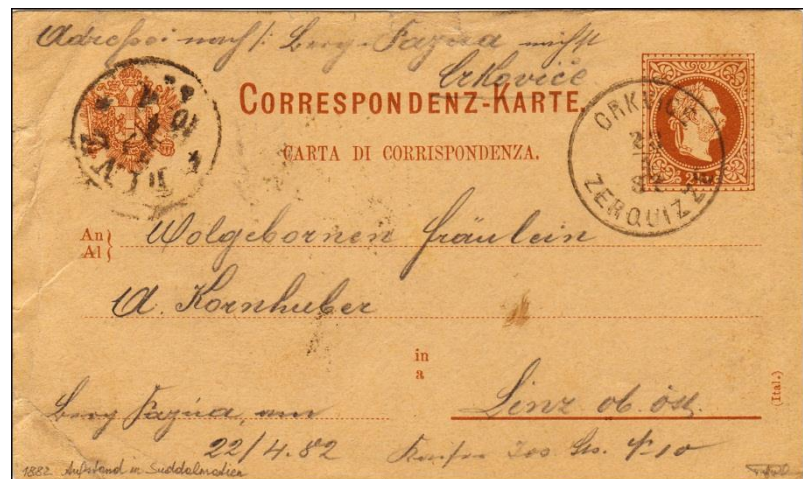 Adressei nach: Berg-Fazúa nicht
Crkoviče
CORRESPONDENZ-KARTE.
CARTA DI CORRISPONDENZA.
CRKVICE
ZERQUIZZE
An
Al
Wolgebornen Fräulein
A. Kornhuber
in
a
Berg Fazúa, am
Linz ob. öst.
22/4.82
(Ital.)
1882 Aufstand in Süddalmatien